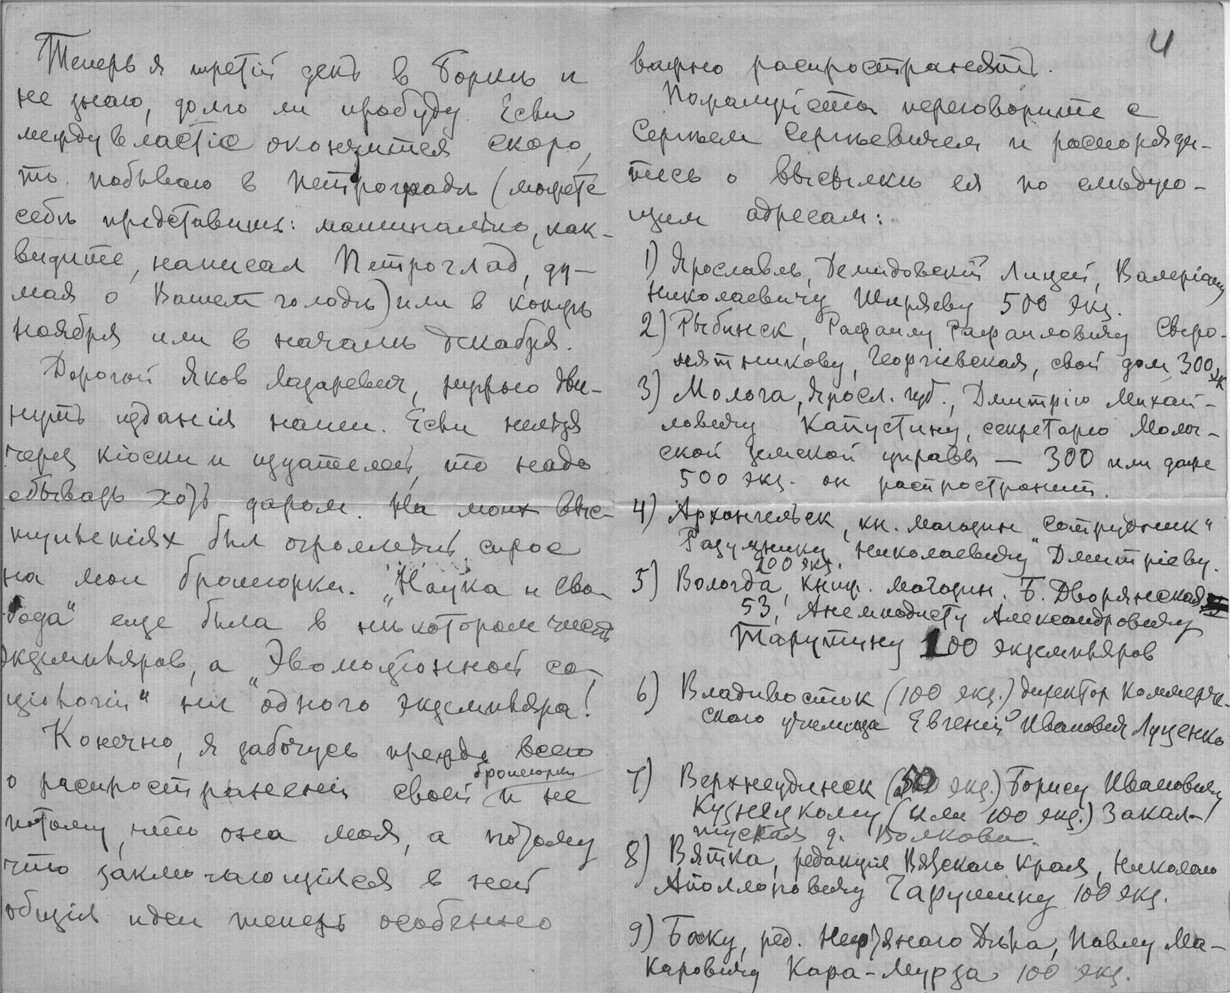 Теперь я третій день в Боркѣ и
не знаю, долго ли пробуду. Если
междувластіе окончится скоро,
то побываю в Петроградѣ (можете
себѣ представить: машинально, как
видите, написал Петроглад, ду-
мая о Вашем голодѣ) или в концѣ
ноября или в началѣ декабря.
Дорогой Яков Лазаревич, нужно дви-
нуть изданія наши. Если нельзя
через кіоски и издателей, то надо
сбывать хоть даром. На моих выс-
туплениях был огромный спрос
на мои брошюрки. „Наука и сво-
бода" еще была в нѣкотором числѣ
экземпляров, а „Эволюціонной со-
ціологіи" ни одного экземпляра!
Конечно, я забочусь прежде всего
о распространеніи своей брошюрки и не
потому, что она моя, а потому
что заключающіяся в ней
общія идеи теперь особенно
4
важно распространять.
Пожалуйста переговорите с
Сергѣем Сергѣевичем и распоряди-
тесь о высылкѣ ея по слѣдую-
щим адресам:
1) Ярославль, Демидовскій Лицей, Валеріану
Николаевичу Ширяеву 500 экз.
2) Рыбинск, Рафаилу Рафаиловичу Сверо-
нятникову, Георгіевская, свой дом, 300 эк
3) Молога, Яросл. губ., Дмитрію Михай-
ловичу Капустину, секретарю Молог-
ской земской управы — 300 или даже
500 экз. он распространит.
4) Архангельск, кн. магазин „Сотрудник"
Разумнику Николаевичу Дмитріеву.
200 экз.
5) Вологда, Книж. магазин. Б. Дворянская
53, Анемподисту Александровичу
Тарутину 100 экземпляров
6) Владивосток (100 экз.) директор Коммерче-
скаго училища Евгеній Иванович Луценко
7) Верхнеудинск (50 экз.) Борису Ивановичу
Кузнецкому (или 100 экз.) Закал-
тусная д. Волкова.
8) Вятка, редакція Вятскаго Края, Николаю
Аполлоновичу Чарушину 100 экз.
9) Баку, ред. Нефтянаго Дѣла, Павлу Ма-
каровичу Кара-Мурза 100 экз.